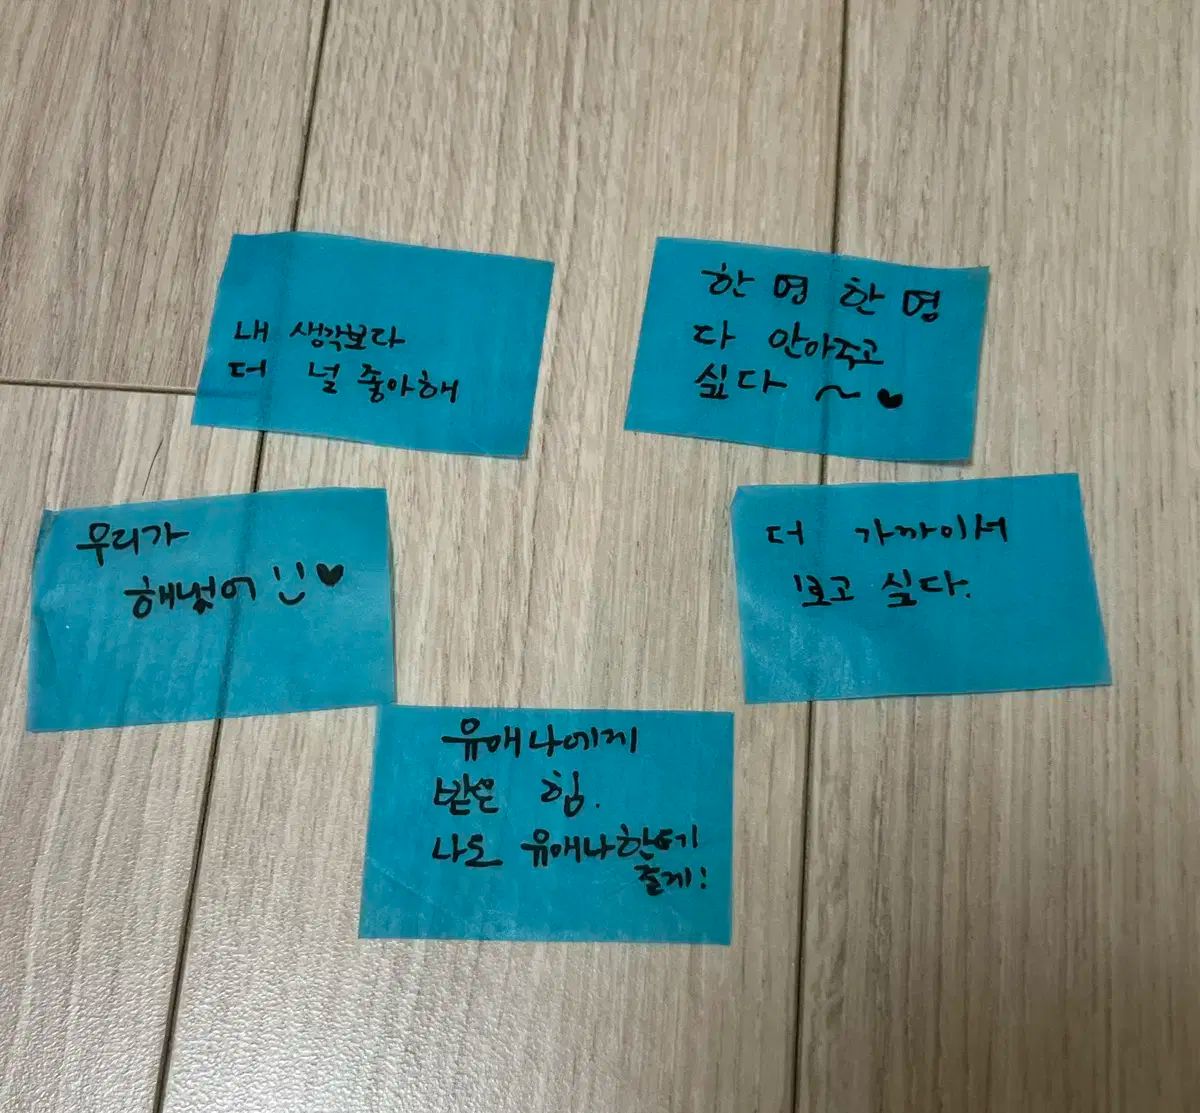 내 생각보다
더 널 좋아해
한 명 한 명
다 안아주고
싶다 ~ ♥
우리가
해냈어 :) ♥
더 가까이서
보고 싶다.
유애나에게
받은 힘.
나도 유애나한테
줄게!